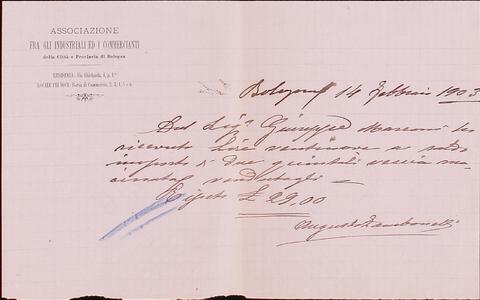 ASSOCIAZIONE
FRA GLI INDUSTRIALI ED I COMMERCIANTI
della Città e Provincia di Bologna
RESIDENZA: Via Ghirlanda, 4, p. 1º
LOCALE PEI SOCI: Borsa di Commercio,
Bologna 14 Febbraio 1903
Dal Sigr. Giuseppe Marconi ho
ricevuto Lire ventinove a saldo
importo di due quintali
vendutagli
Dico £ 29.00
Augusto